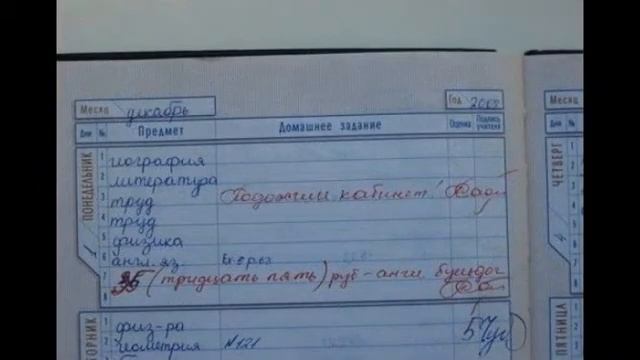 Месяц декабрь Год 2008
Дни № Предмет Домашнее задание Оценка Подпись учителя
ПОНЕДЕЛЬНИК 1
1 география
2 литература
3 труд Поджигал кабинет!
4 труд
5 физика
6 англ. яз.
7 35 (тридцать пять) руб - англ. бульдог
8
ВТОРНИК
физ-ра
геометрия №121 5
Месяц
Дни №
ЧЕТВЕРГ 4
1
2
3
4
5
6
7
8
ПЯТНИЦА
1
2
3